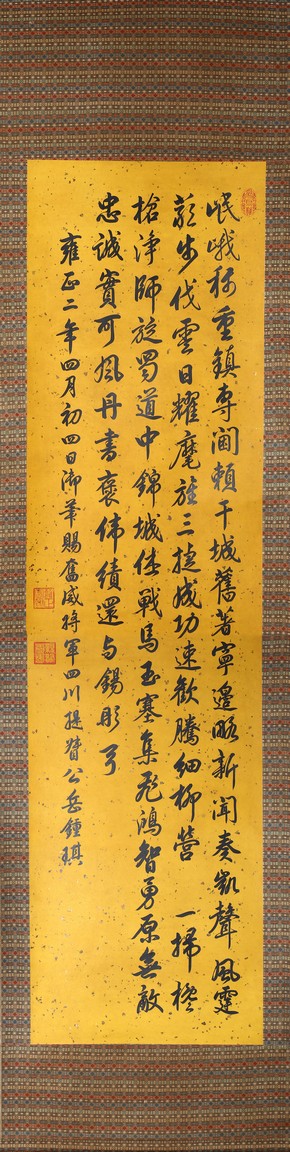 岷峨称重鎮專閫頼干城舊著寧邊略新聞奏凱聲風霆
蕤步伐雲日耀麾旌三捷成功速歡騰細柳營 一掃欃
槍淨師旋蜀道中錦城休戰馬玉塞集飛鴻智勇原無敵
忠誠實可風丹書褒偉績還与錫彤弓
雍正二年四月初四日御筆賜奮威将軍四川提督公岳鍾琪